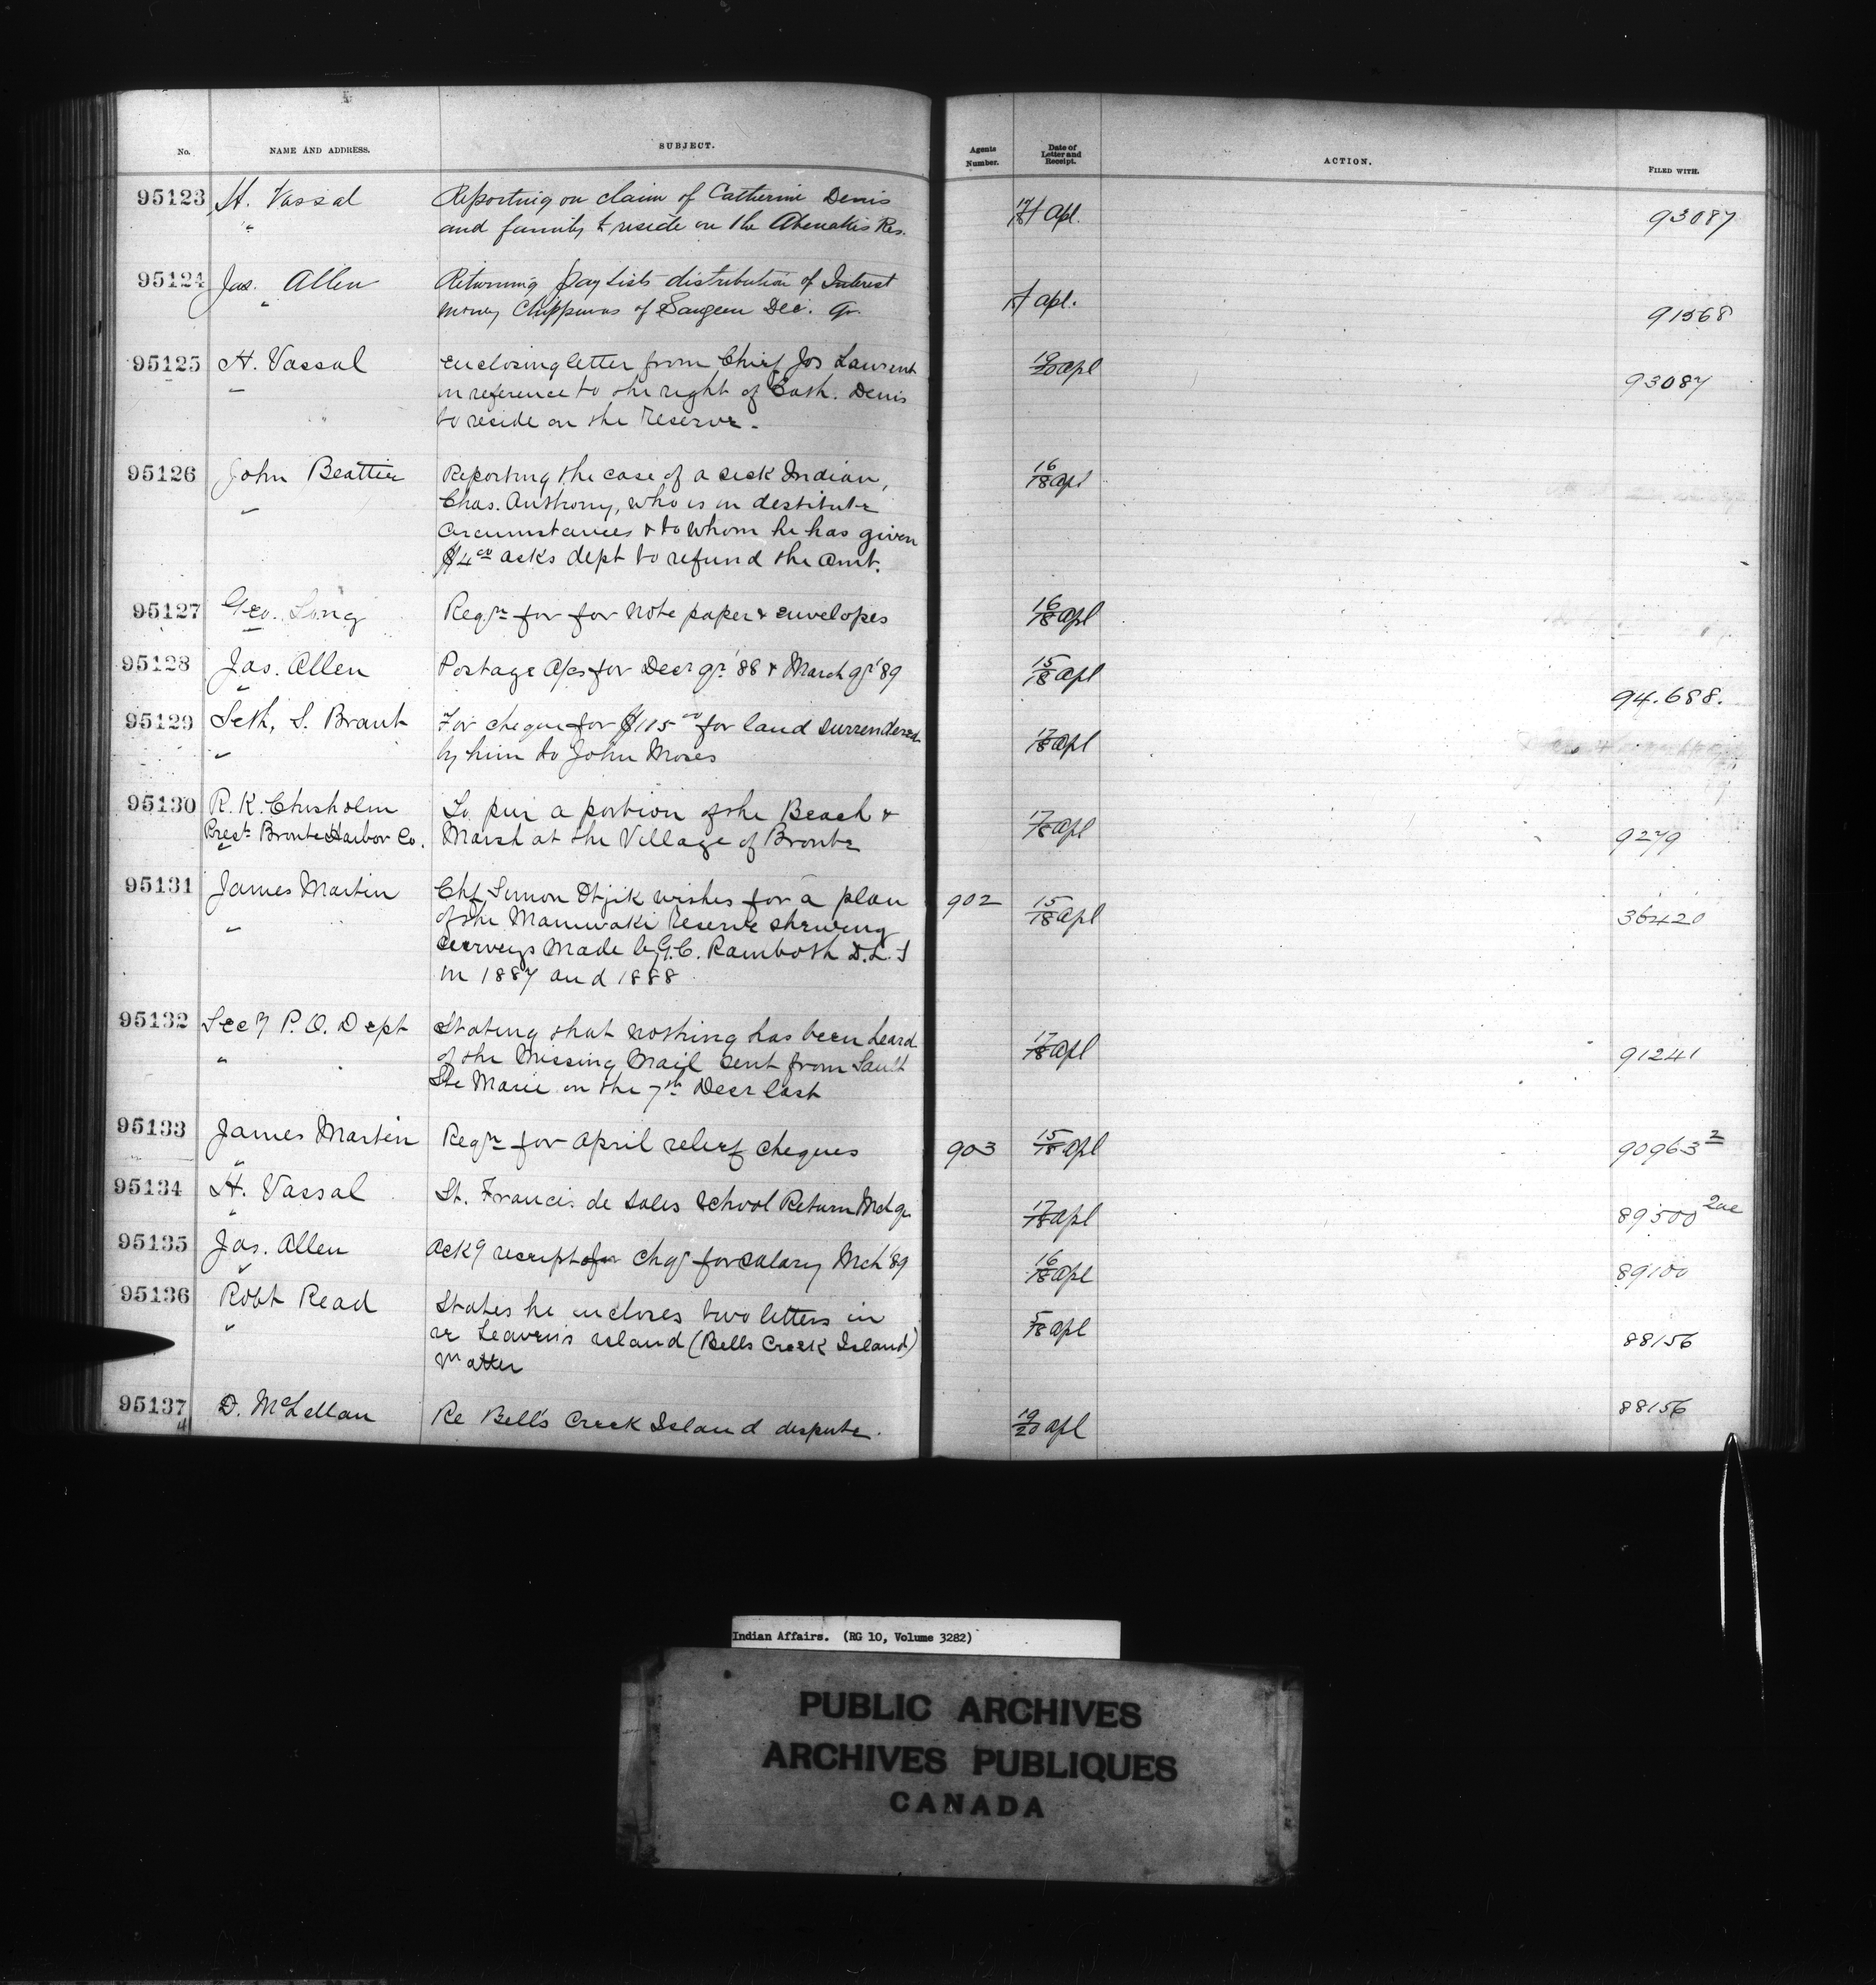 No. NAME AND ADDRESS. SUBJECT. Agents Number. Date of Letter and Receipt. ACTION. FILED WITH.
95123 H. Vassal Reporting on claim of Catherine Denis 17/18 Apl. 93087
" and family to reside on the Abenakis Res.
95124 Jas. Allen Returning Paylists distribution of Interest Apl. 91568
" money Chippewas of Saugeen Dec. Qr.
95125 H. Vassal Enclosing letter from Chief Jos Laurent 19/20 Apl 93087
" in reference to the right of Cath. Denis
to reside on the Reserve.
95126 John Beattie Reporting the case of a sick Indian, 16/18 Apl
" Chas. Anthony, who is in destitute
circumstances & to whom he has given
$4.00 asks dept to refund the amt.
95127 Geo. Long Reqn for for note paper & envelopes 16/18 Apl
95128 Jas. Allen Postage A/cs for Decr qr. '88 & March qr '89 15/18 Apl 94.688.
"
95129 Seth, S. Brant For cheque for $115.00 for land surrendered 17/18 Apl
" by him to John Moses
95130 R. K. Chisholm To pur a portion of the Beach & 17/18 Apl 9279
Prest. Bronte Harbor Co. Marsh at the Village of Bronte
"
95131 James Martin Chf Simon Otjik wishes for a plan 902 15/18 Apl 36420
" of the Maniwaki Reserve shewing
surveys made by G.C. Rainboth D.L.S
in 1887 and 1888
95132 Secy P.O. Dept Stating that nothing has been heard 17/18 Apl 91241
" of the Missing Mail sent from Sault
Ste Marie on the 7th Decr last
95133 James Martin Reqn for April relief cheques 903 15/18 Apl 90963 2
"
95134 H. Vassal St. Francis de Sales School Return Mch qr 17/18 Apl 89500 2ae
"
95135 Jas. Allen Ackg receipt of for chq for salary Mch '89 16/18 Apl 89100
"
95136 Robt Read States he encloses two letters in 5/18 Apl 88156
" re Leaven's Island (Bells Creek Island)
Matter
95137 D. McLellan Re Bell's Creek Island dispute. 19/20 Apl 88156
"
Indian Affairs. (RG 10, Volume 3282)
PUBLIC ARCHIVES
ARCHIVES PUBLIQUES
CANADA